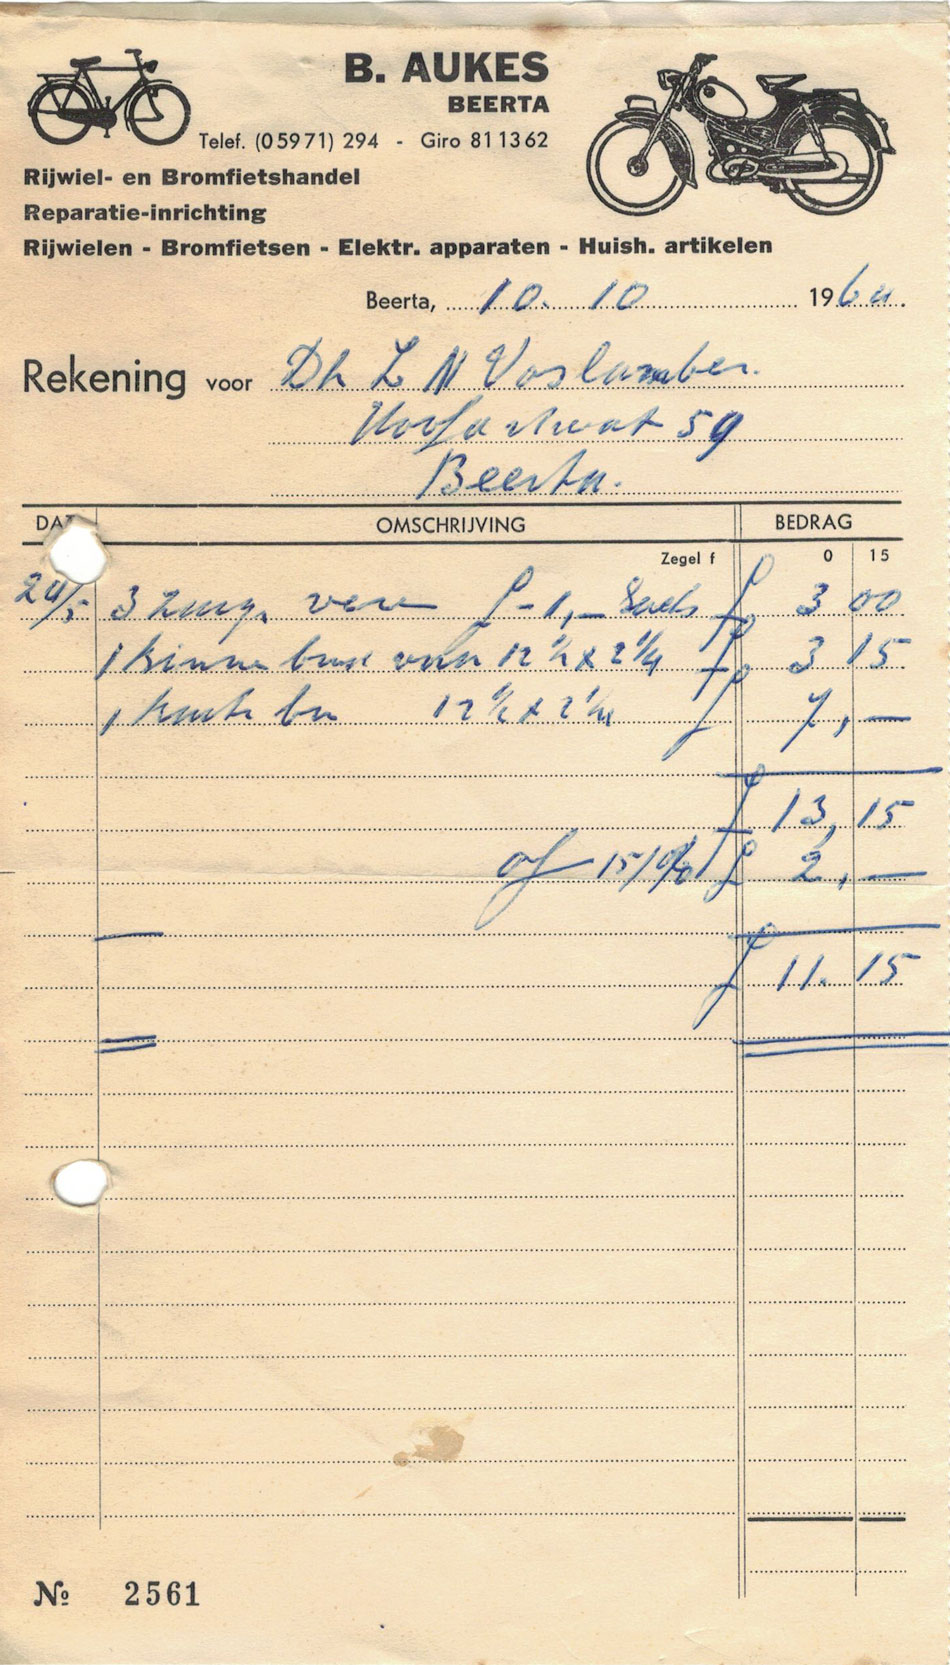 B. AUKES
BEERTA
Telef. (05971) 294 - Giro 811362
Rijwiel- en Bromfietshandel
Reparatie-inrichting
Rijwielen - Bromfietsen - Elektr. apparaten - Huish. artikelen
Beerta, 10. 10 1964.
Rekening voor Dh L N Voslamber.
59
Beerta.
DAT OMSCHRIJVING BEDRAG
Zegel f 0 15
24/5 3 veren f-1,- f 3 00
1 Binne van 12 1/2 x 2 1/4 f 3 15
1 12 1/2 x 2 1/4 f 7,—
f 13,15
af 15/% f 2,—
f 11.15
No 2561